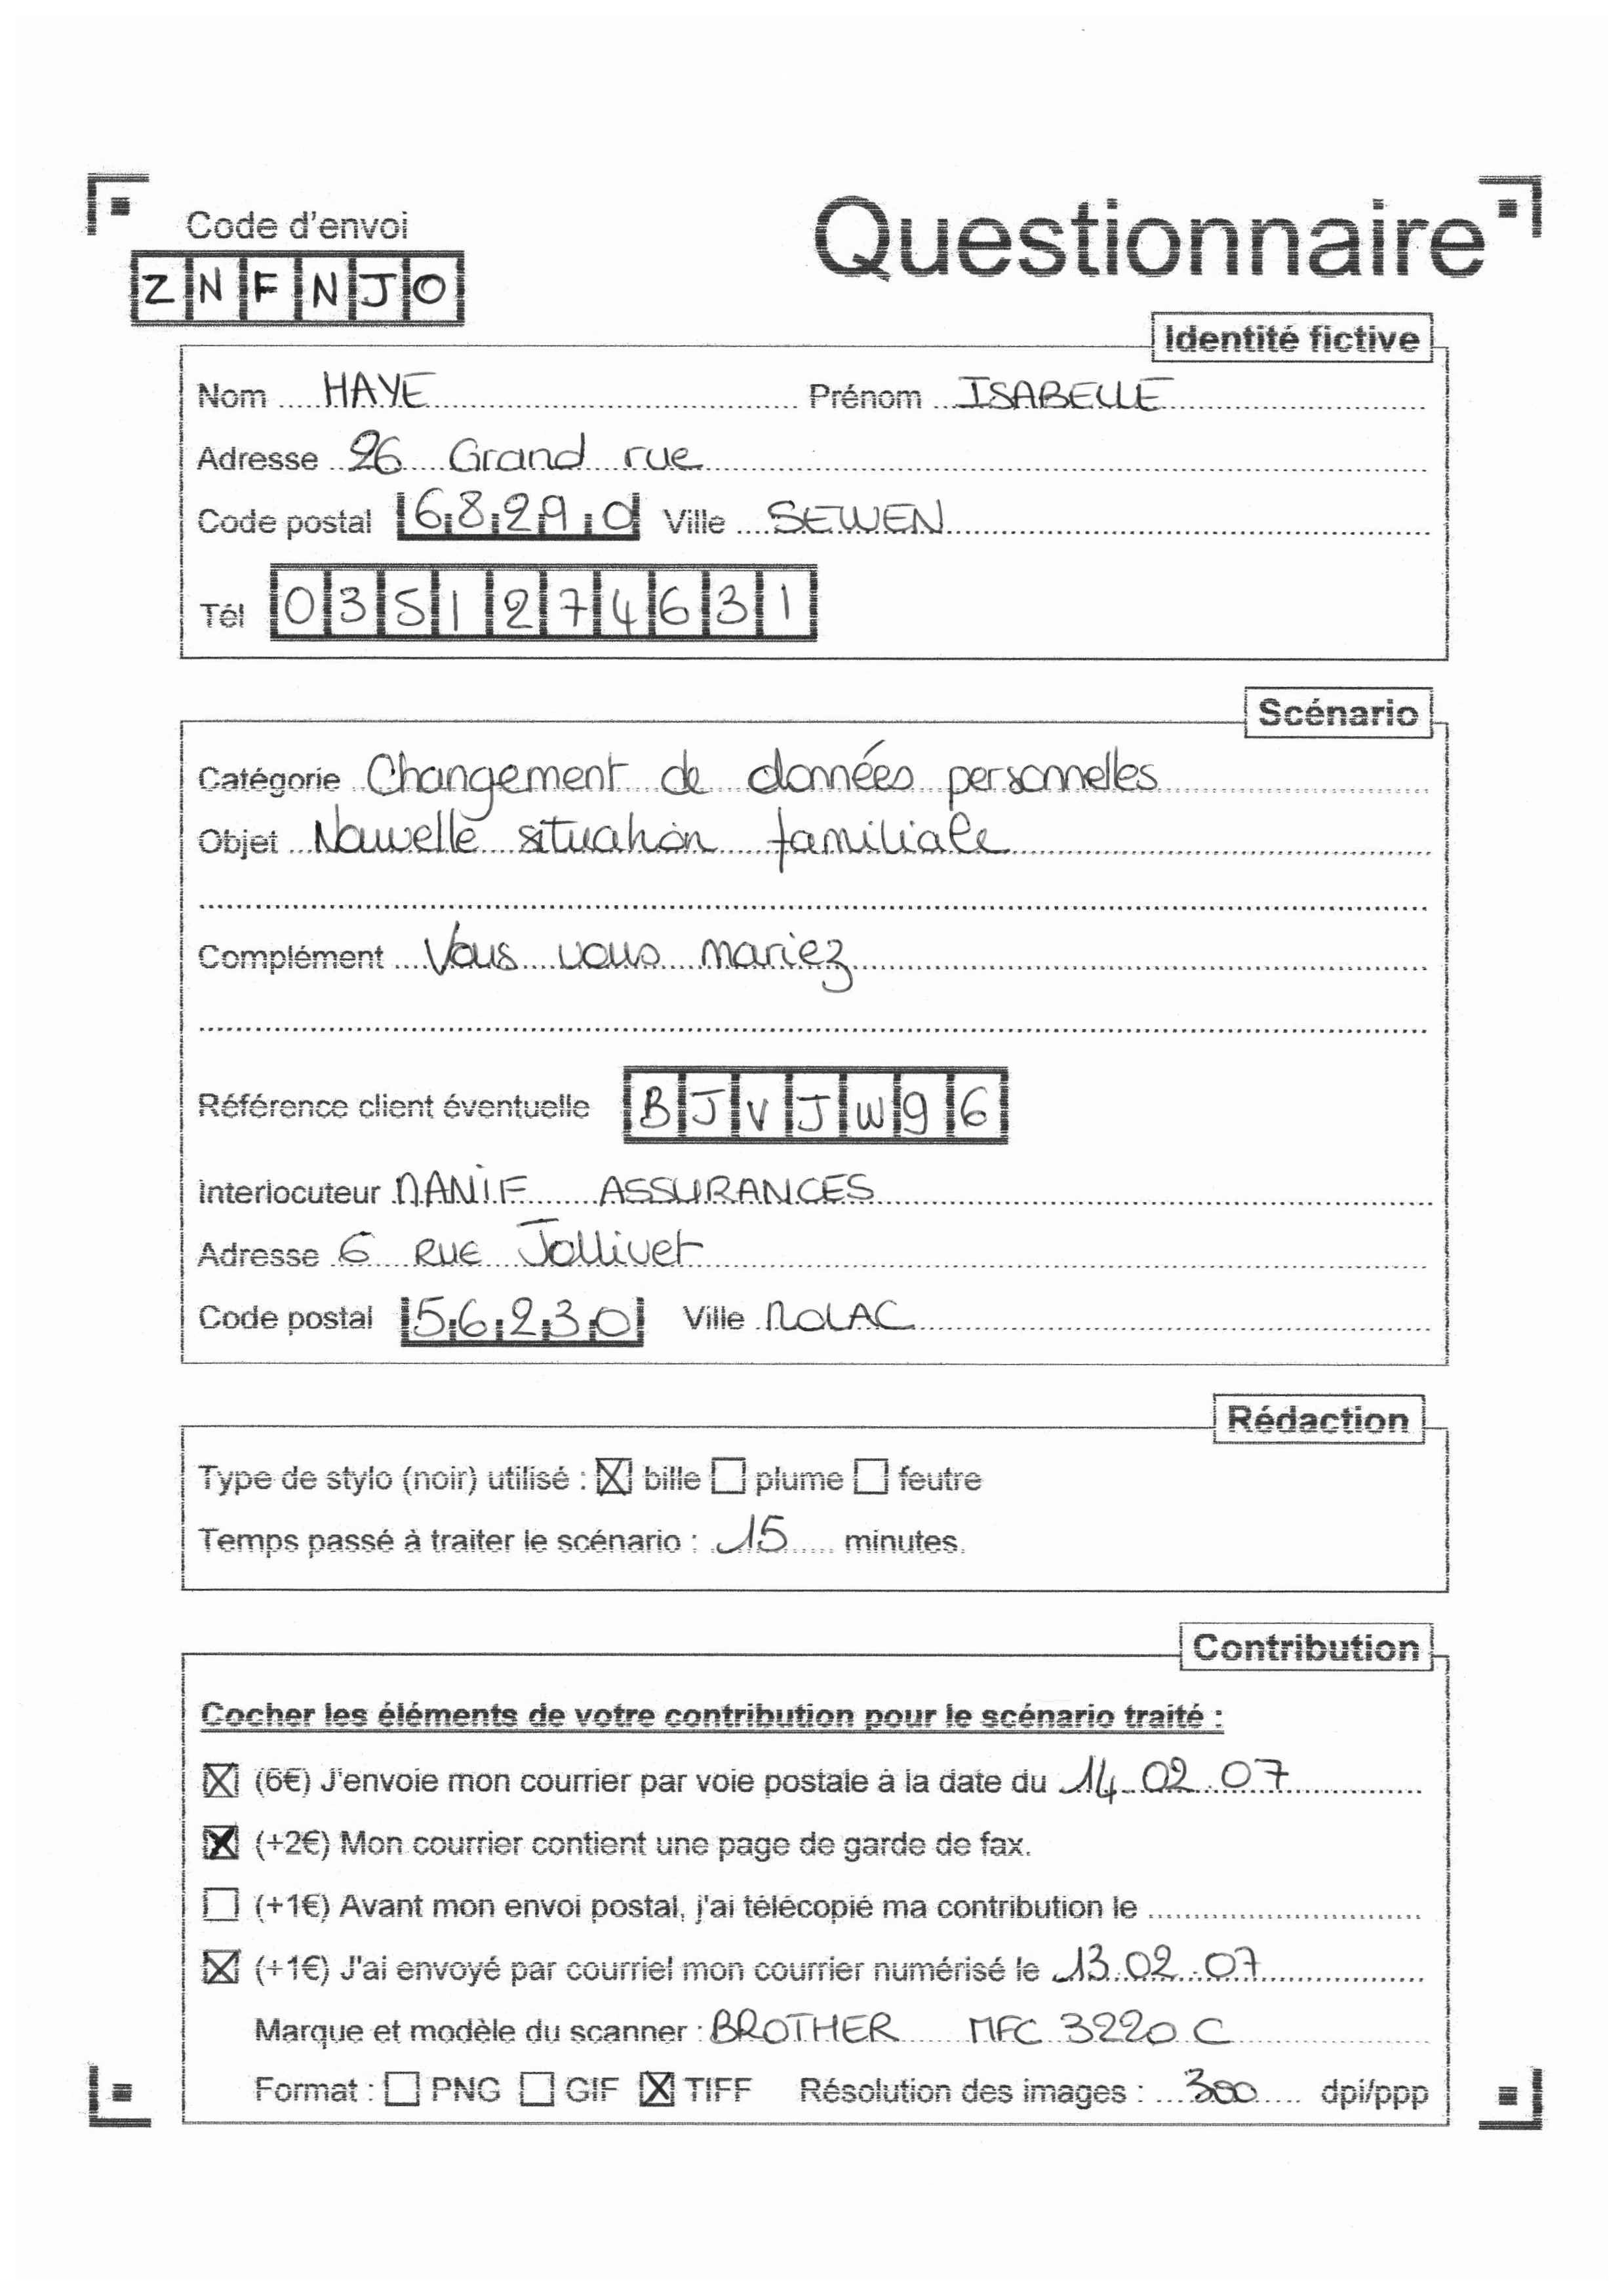 Code d'envoi
Questionnaire
ZNFNJO
Identité fictive
Nom HAYE Prénom ISABELLE
Adresse 26 Grand rue
Code postal 68290 Ville SEWEN
Tél 0351274631
Scénario
Catégorie Changement de données personnelles
Objet Nouvelle situation familiale
Complément Vous vous mariez
Référence client éventuelle BJVJW96
Interlocuteur MANIF ASSURANCES
Adresse 6 RUE Jollivet
Code postal 56230 Ville MOLAC
Rédaction
Type de stylo (noir) utilisé : ☒ bille ☐ plume ☐ feutre
Temps passé à traiter le scénario : 15 minutes.
Contribution
Cocher les éléments de votre contribution pour le scénario traité :
☒ (6€) J'envoie mon courrier par voie postale à la date du 14.02.07
☒ (+2€) Mon courrier contient une page de garde de fax.
☐ (+1€) Avant mon envoi postal, j'ai télécopié ma contribution le
☒ (+1€) J'ai envoyé par courriel mon courrier numérisé le 13.02.07
Marque et modèle du scanner : BROTHER MFC 3220 C
Format : ☐ PNG ☐ GIF ☒ TIFF Résolution des images : 300 dpi/ppp